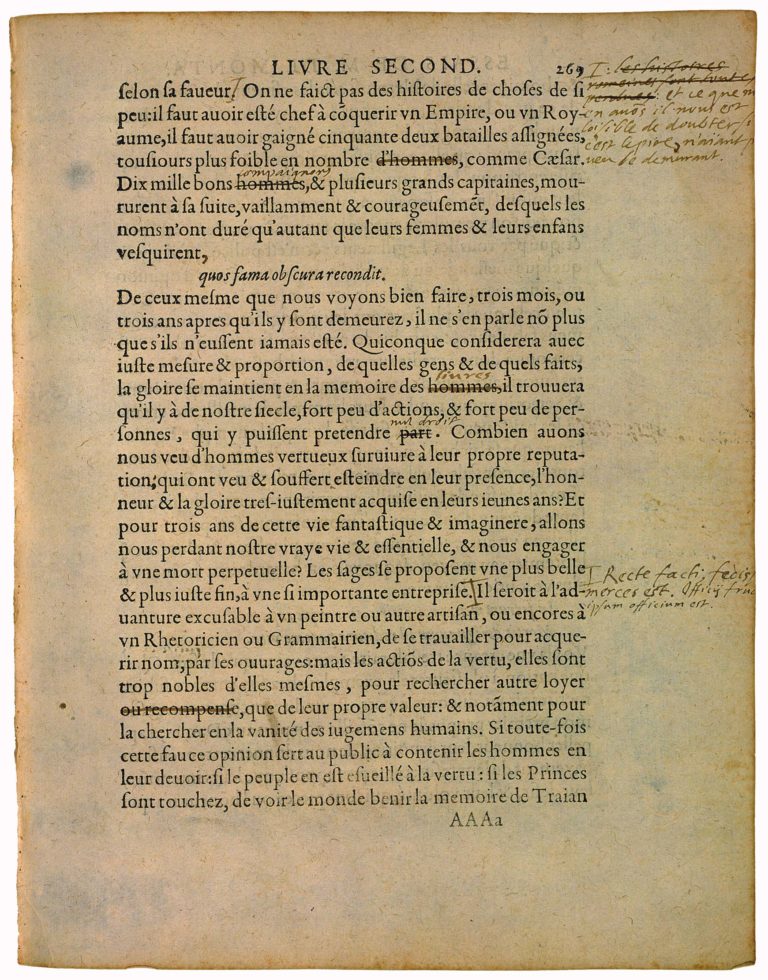 LIVRE SECOND. 269
ſelon sa faueur/ On ne faict pas des hiſtoires de choſes de ſi
peu: il faut auoir eſté chef à cõquerir vn Empire, ou vn Roy-
aume, il faut auoir gaigné cinquante deux batailles aſſignées,
touſiours plus foible en nombre d'hommes, comme Cæſar.
compaignons
Dix mille bons hommes, & pluſieurs grands capitaines, mou-
rurent à ſa ſuite, vaillamment & courageuſemẽt, deſquels les
noms n'ont duré qu'autant que leurs femmes & leurs enfans
veſquirent,
quos fama obſcura recondit.
De ceux meſme que nous voyons bien faire, trois mois, ou
trois ans apres qu'ils y ſont demeurez, il ne s'en parle nõ plus
que s'ils n'euſſent iamais eſté. Quiconque conſiderera auec
iuſte meſure & proportion, de quelles gens & de quels faits,
liures
la gloire ſe maintient en la memoire des hommes, il trouuera
qu'il y à de noſtre ſiecle, fort peu d'actions, & fort peu de per-
nul droit
ſonnes, qui y puiſſent pretendre part. Combien auons
nous veu d'hommes vertueux ſuruiure à leur propre reputa-
tion, qui ont veu & ſouffert eſteindre en leur preſence, l'hon-
neur & la gloire tres-iuſtement acquiſe en leurs ieunes ans? Et
pour trois ans de cette vie fantaſtique & imaginere, allons
nous perdant noſtre vraye vie & eſſentielle, & nous engager
à vne mort perpetuelle? Les sages ſe propoſent vne plus belle
& plus iuſte fin, à vne ſi importante entrepriſe. Il ſeroit à l'ad-
uanture excuſable à vn peintre ou autre artiſan, ou encores à
vn Rhetoricien ou Grammairien, de ſe trauailler pour acque-
rir nom, par ſes ouurages: mais les actiõs de la vertu, elles ſont
trop nobles d'elles meſmes, pour rechercher autre loyer
ou recompenſe, que de leur propre valeur: & notãment pour
la chercher en la vanité des iugemens humains. Si toute-fois
cette fauce opinion ſert au public à contenir les hommes en
leur deuoir: ſi le peuple en eſt eſueillé à la vertu: ſi les Princes
ſont touchez, de voir le monde benir la memoire de Traian
AAAa
les histoires
romaines sont toute
perdues: et ce que
en auõs il nous est
loisible de doubter si
c'est le pire, n'aiant
veu le demurant.
Recte facti, fecisse
merces est. Officij fruc
ipsum officium est.